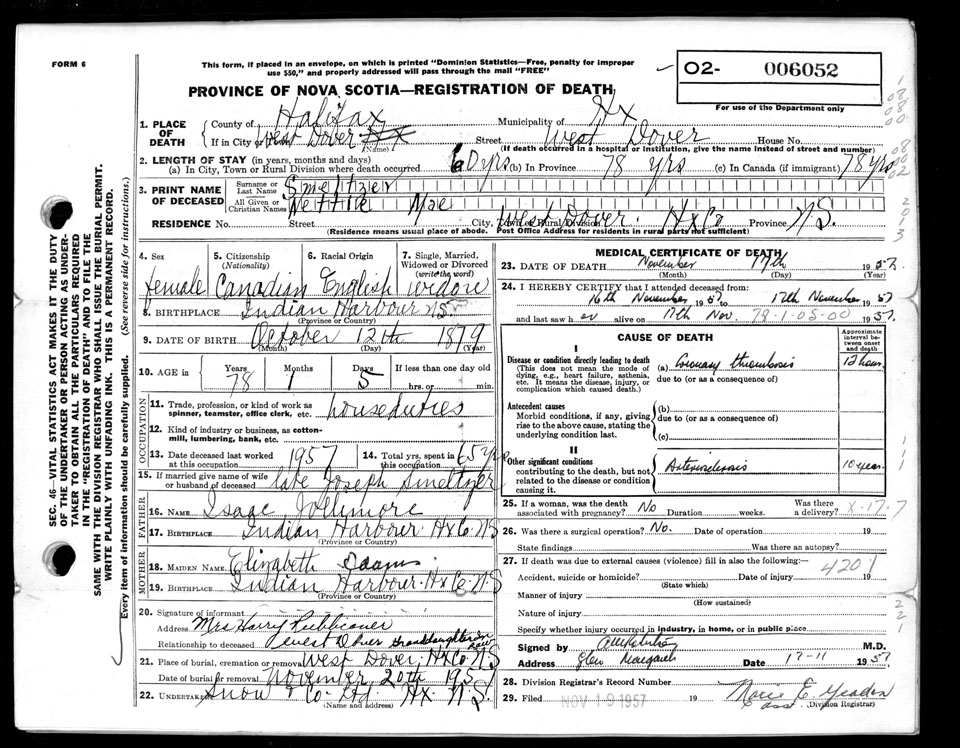 FORM 6
This form, if placed in an envelope, on which is printed "Dominion Statistics—Free, penalty for improper
use $50," and properly addressed will pass through the mail "FREE"
O2- 006052
For use of the Department only
PROVINCE OF NOVA SCOTIA—REGISTRATION OF DEATH
1. PLACE OF DEATH
County of Halifax Municipality of Hx
If in City or Town West Dover Street West Dover House No.
(Name) (If death occurred in a hospital or institution, give the name instead of street and number)
2. LENGTH OF STAY (in years, months and days)
(a) In City, Town or Rural Division where death occurred 60 yrs (b) In Province 78 yrs (c) In Canada (if immigrant) 78 yrs
3. PRINT NAME OF DECEASED
Surname or Last Name Smeltzer
All Given or Christian Names Nettie Mae
RESIDENCE No. Street City, Town or Rural Division West Dover. Hx Co Province N.S.
(Residence means usual place of abode. Post Office Address for residents in rural parts not sufficient)
4. Sex female
5. Citizenship (Nationality) Canadian
6. Racial Origin English
7. Single, Married, Widowed or Divorced (write the word) widow
8. BIRTHPLACE Indian Harbour NS
(Province or Country)
9. DATE OF BIRTH October 12th 1879
(Month) (Day) (Year)
10. AGE in Years 78 Months 1 Days 5 If less than one day old
hrs. or min.
OCCUPATION
11. Trade, profession, or kind of work as spinner, teamster, office clerk, etc. houseduties
12. Kind of industry or business, as cotton-mill, lumbering, bank, etc.
13. Date deceased last worked at this occupation 1957
14. Total yrs. spent in this occupation 65 yrs
15. If married give name of wife or husband of deceased late Joseph Smeltzer
FATHER
16. NAME Isaac Jollimore
17. BIRTHPLACE Indian Harbour. Hx Co. N.S
(Province or Country)
MOTHER
18. MAIDEN NAME Elizabeth Isaacs
19. BIRTHPLACE Indian Harbour. Hx Co. N.S
(Province or Country)
20. Signature of informant
Address Mrs Harry
Relationship to deceased West Dover Granddaughter in law
21. Place of burial, cremation or removal West Dover. Hx Co. N.S
Date of burial or removal November 20th 1957
22. UNDERTAKER Snow & Co. Ltd. Hx. N.S.
(Name and address)
MEDICAL CERTIFICATE OF DEATH
23. DATE OF DEATH November 17th 1957
(Month) (Day) (Year)
24. I HEREBY CERTIFY that I attended deceased from:
16th November 1957 to 17th November 1957
and last saw her alive on 17th Nov. 78-1-05-00 1957.
CAUSE OF DEATH
Approximate interval between onset and death
I
Disease or condition directly leading to death
(This does not mean the mode of dying, e.g., heart failure, asthenia, etc. It means the disease, injury, or complication which caused death.)
(a) Coronary thrombosis 12 hours
due to (or as a consequence of)
Antecedent causes
Morbid conditions, if any, giving rise to the above cause, stating the underlying condition last.
(b)
due to (or as a consequence of)
(c)
II
Other significant conditions
contributing to the death, but not related to the disease or condition causing it.
Arteriosclerosis 10 year.
25. If a woman, was the death associated with pregnancy? No Duration weeks. Was there a delivery? X-17-7
26. Was there a surgical operation? No. Date of operation 19
State findings Was there an autopsy?
27. If death was due to external causes (violence) fill in also the following:—
4201
Accident, suicide or homicide? Date of injury 19
(State which)
Manner of injury
(How sustained)
Nature of injury
Specify whether injury occurred in industry, in home, or in public place
Signed by M.D.
Address Glen Margaret Date 17-11 1957
28. Division Registrar's Record Number
29. Filed NOV 19 1957 19
(Division Registrar)
SEC. 46—VITAL STATISTICS ACT MAKES IT THE DUTY
OF THE UNDERTAKER OR PERSON ACTING AS UNDER-
TAKER TO OBTAIN ALL THE PARTICULARS REQUIRED
IN THE "REGISTRATION OF DEATH" AND TO FILE THE
SAME WITH THE DIVISION REGISTRAR WHO SHALL ISSUE THE BURIAL PERMIT.
WRITE PLAINLY WITH UNFADING INK. THIS IS A PERMANENT RECORD.
Every item of information should be carefully supplied. (See reverse side for instructions.)